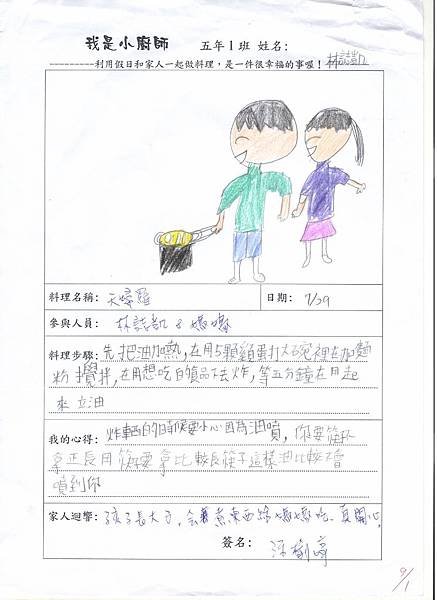 我是小廚師 五年1班 姓名:
---------利用假日和家人一起做料理,是一件很幸福的事喔! 林誌凱
料理名稱: 天婦羅 日期: 7/29
參與人員: 林誌凱 & 媽媽
料理步驟: 先把油加熱,在用5顆雞蛋打大碗裡在加麵
粉攪拌,在用想吃的食品下去炸,等五分鐘在用起
來立油
我的心得: 炸東西的時候要小心因為油噴,你要
拿正長用筷子要拿比較長筷子這樣油比較不會
噴到你
家人迴響: 孩子長大了,會煮東西給媽媽吃、真開心
簽名:
9/1